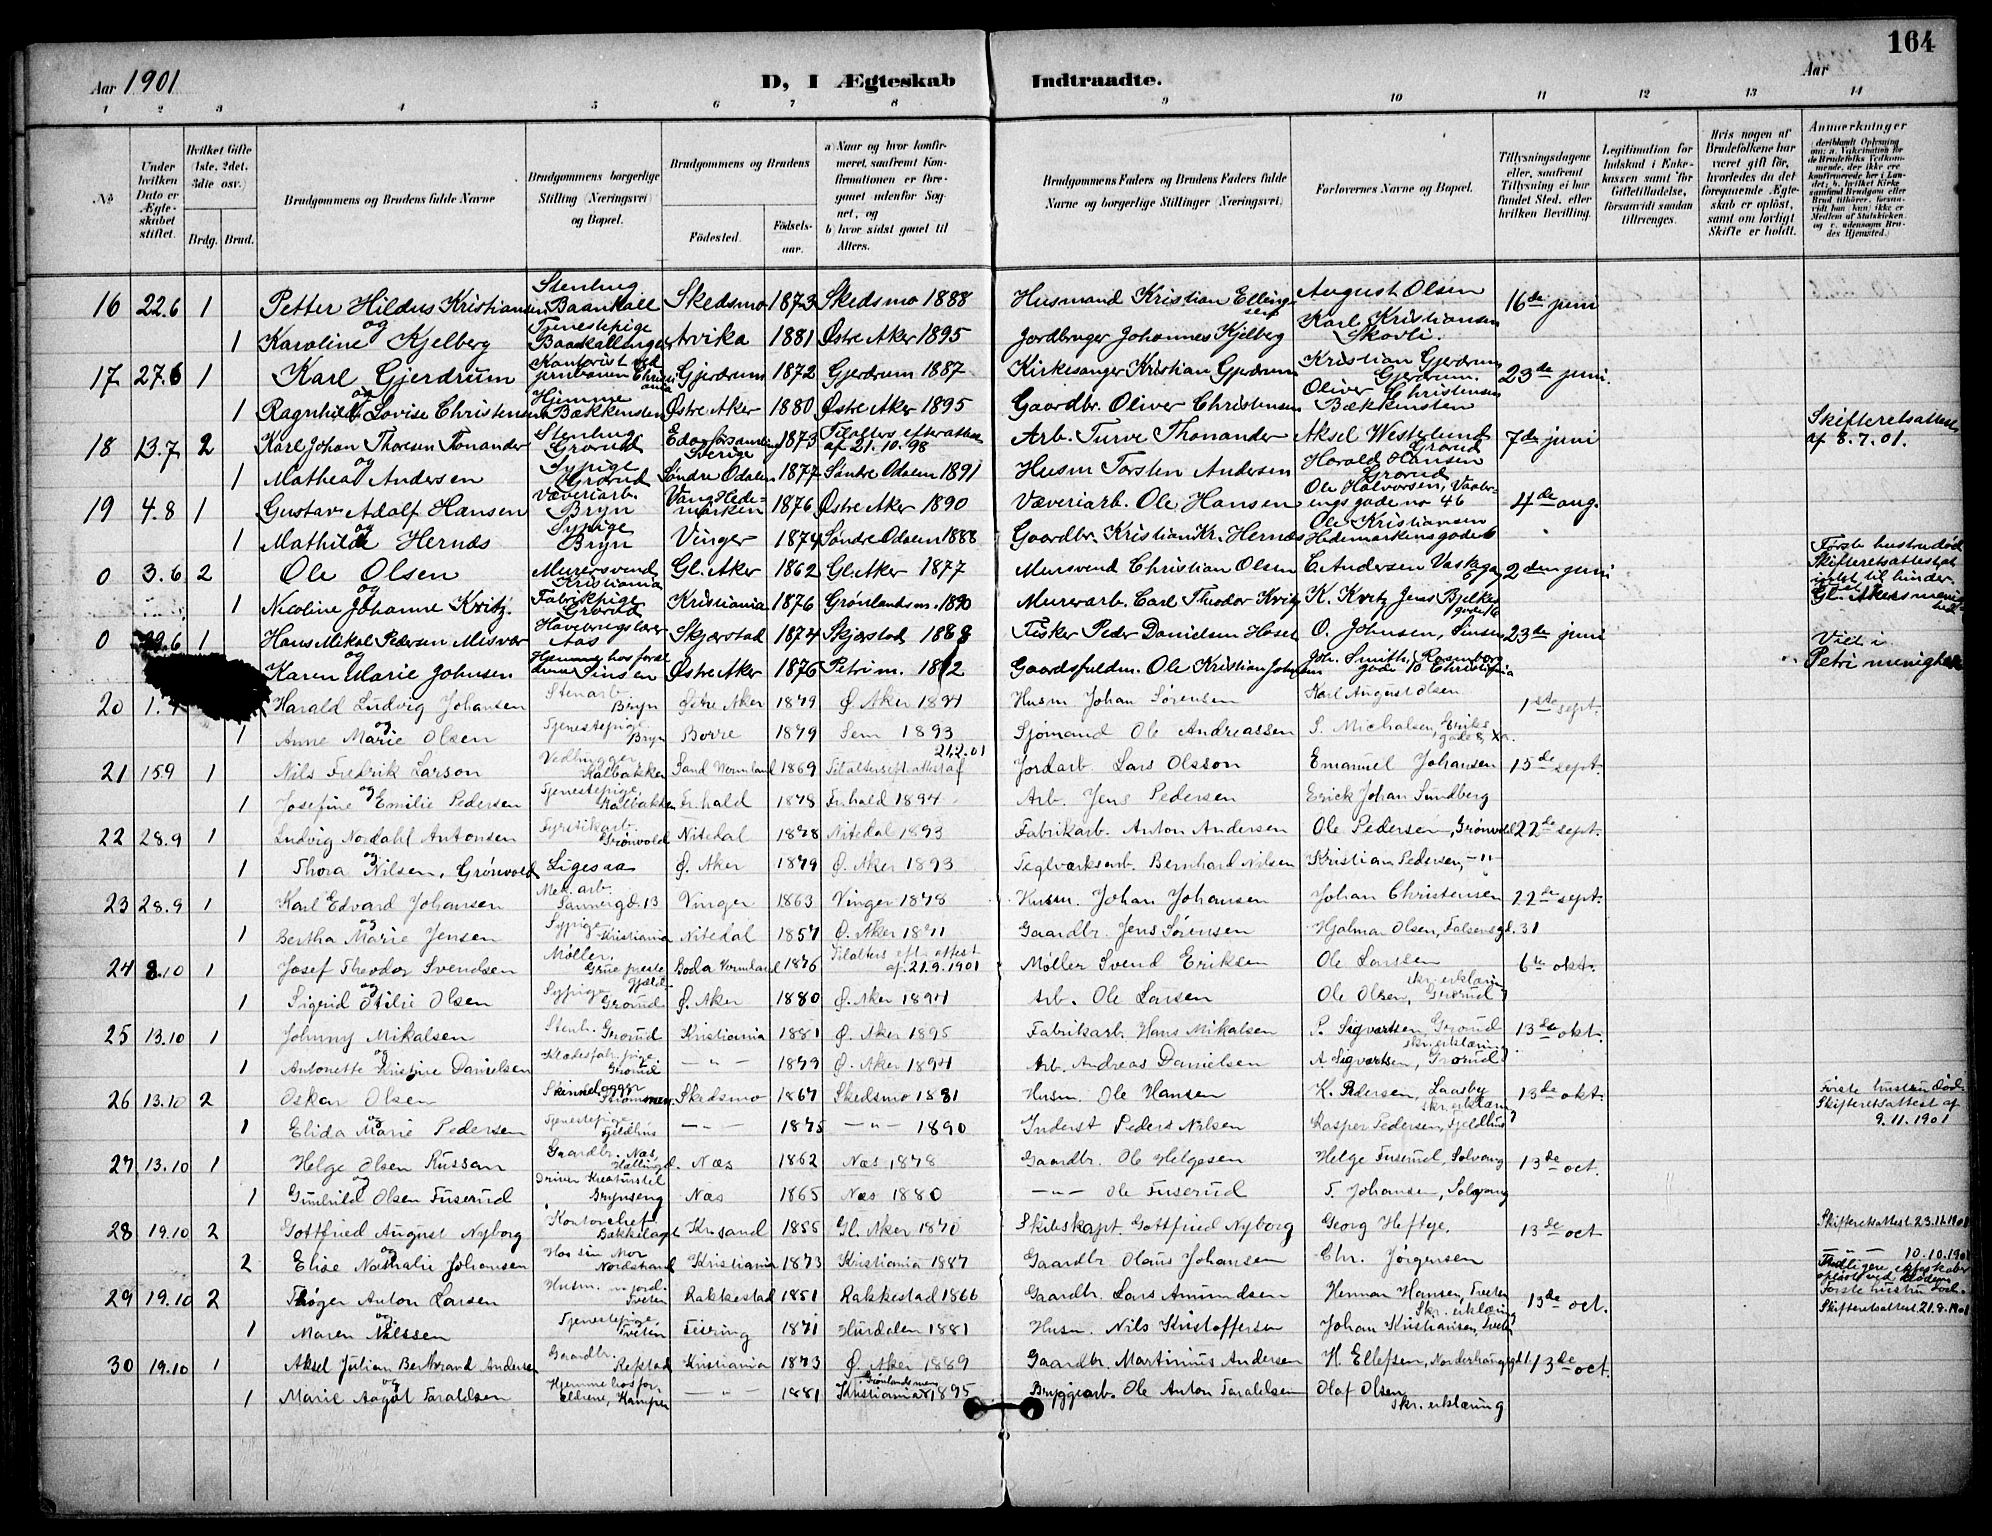 164
Aar 1901
D, I Ægteskab Indtraadte.
Aar
1 2 3 4 5 6 7 8 9 10 11 12 13 14
№
Under hvilken Dato er Ægteskabet stiftet.
Hvilket Gifte (1ste, 2det, 3die osv.)
Brdg. Brud.
Brudgommens og Brudens fulde Navne
Brudgommens borgerlige Stilling (Næringsvei) og Bopæl.
Brudgommens og Brudens
Födested. Födselsaar.
a) Naar og hvor konfirmeret, saafremt Konfirmationen er foregaaet udenfor Sognet, og b) hvor sidst gaaet til Alters.
Brudgommens Faders og Brudens Faders fulde Navne og borgerlige Stillinger (Næringsvei)
Forlovernes Navne og Bopæl.
Tillysningsdagene eller, saafremt Tillysning ei har fundet Sted, efter hvilken Bevilling.
Legitimation for Indskud i Enkekassen samt for Giftetilladelse, forsaavidt saadan tiltrænges.
Hvis nogen af Brudefolkene har været gift før, hvorledes da det foregaaende Ægteskab er oplöst, samt om lovligt Skifte er holdt.
Anmerkninger
16 22.6 1 Petter Hildus Kristiansen Stenhug. Baankall Skedsmo 1873 Skedsmo 1888 Husmand Kristian Ellingsen August Olsen 16de juni
og
1 Karoline Kjelberg Tjenestepige Arvika 1881 Østre Aker 1895 Jordbruger Johannes Kjelberg Karl Kristiansen Skovli.
17 27.6 1 Karl Gjerdrum Kontorist ved Gjerdrum 1872 Gjerdrum 1887 Kirkesanger Kristian Gjerdrum Kristian Gjerdrum Gjerdrum. 23de juni.
og
1 Ragnhild Lovise Christensen Hjemme Bækkensten Østre Aker 1880 Østre Aker 1895 Gaardbr. Oliver Christensen Oliver Christensen Bækkensten
18 13.7 2 Karl Johan Thorsen Tonander Stenhug. Grorud Eda Sverige 1873 Tilalters efter attest af 21.10.98 Arb. Ture Thonander Aksel Westlund Grorud 7de juni Skifteretsattest af 8.7.01.
og
1 Mathea Andersen Sypige Grorud Søndre Odalen 1877 Søndre Odalen 1891 Husm Torsten Andersen Harald Hansen Grorud
19 4.8 1 Gustav Adolf Hansen Væveriarb. Bryn Vang Hedemarken 1876 Østre Aker 1890 Væveriarb. Ole Hansen Ole Halvorsen, gade no 46 4de aug.
og
1 Mathilde Hernæs Sypige Bryn Vinger 1874 Søndre Odalen 1888 Gaardbr. Kristian Kr. Hernæs Ole Kristiansen Hedemarkens gade 6
0 3.6 2 Ole Olsen Murersvend Kristiania Gl. Aker 1862 Gl. Aker 1877 Mursvend Christian Olsen C. Andersen 2den juni Første hustru død Skifteretsattest at intet til hinder Gl. Akers menighed
og
1 Nicoline Johanne Kvitz Fabrikpige Grorud Kristiania 1876 Grønlands m. 1890 Murerarb. Carl Theodor Kvitz K. Kvitz Jens Bjelkes gade 16
0 29.6 1 Hans Mikal Pedersen Misvær Aas Skjerstad 1874 Skjerstad 1888 Fisker Peder Danielsen O. Johnsen, Sinsen 23de juni Viet i Petri menighed
og
Karen Marie Johnsen Sinsen Østre Aker 1876 Petri m. 1892 Gaardsfuldm. Ole Kristian Johnsen Joh. Smith, gade 10 Christiania
20 1. Harald Ludvig Johansen Stenarb. Bryn Østre Aker 1879 Ø. Aker 1894 Husm Johan Sørensen Karl August Olsen 1ste sept.
og
1 Anne Marie Olsen Tjenestepige Bryn Borre 1879 Sem 1893 Sjømand Ole Andreassen S. Michalsen, Eriks gade 8, Xa.
21 15.9 1 Nils Fredrik Larson Vedhugger Kalbakken Sand Vermland 1869 Til alters eft. attest af 21.2.01 Jordarb. Lars Olsson Emanuel Johansen 15de sept.
og
1 Josefine Emilie Pedersen Tjenestepige, Kalbakken Fr.hald 1878 Fr.hald 1894 Arb. Jens Pedersen Erick Johan Sundberg
22 28.9 1 Ludvig Nordahl Antonsen Fyrstikarb. Grønvold Nitedal 1878 Nitedal 1893 Fabrikarb. Anton Andersen Ole Pedersen, Grønvold 22de sept.
og
1 Thora Nilsen, Grønvold Ligesaa Ø. Aker 1879 Ø. Aker 1893 Teglværksarb. Bernhard Nilsen Kristian Pedersen, —"—
23 28.9 1 Karl Edvard Johansen Mek. arb. Sannergd. 13 Vinger 1863 Vinger 1878 Husm. Johan Johansen Johan Christensen 22de sept.
og
1 Bertha Marie Jensen Sypige Kristiania Nitedal 1857 Ø. Aker 1871 Gaardbr. Jens Sørensen Hjalmar Olsen, Falsensgd. 31
24 8.10 1 Josef Theodor Svendsen Møller, Grue Boda Vermland 1876 Til alters eft. attest af 21.9.1901 Møller Svend Eriksen Ole Larsen 6te okt.
og
1 Sigrid Otilie Olsen Sypige Grorud Ø. Aker 1880 Ø. Aker 1894 Arb. Ole Larsen Ole Olsen, Grorud skr. erklæring
25 13.10 1 Johnny Mikalsen Stenh. Grorud Kristiania 1881 Ø. Aker 1895 Fabrikarb. Hans Mikalsen P. Sigvartsen, Grorud 13de okt.
og
1 Antonette Kristine Danielsen Klædesfabr.pige Grorud —"— 1879 Ø. Aker 1894 Arb. Andreas Danielsen A Sigvartsen, Grorud skr. erklæring
26 13.10 2 Oskar Olsen Skinnelægger Strømmen Skedsmo 1867 Skedsmo 1881 Husm. Ole Hansen K. Pedersen, Laasby 13de okt. Første hustru død. Skifteretsattest af 9.11.1901
og
1 Elida Marie Pedersen Tjenestepige Fjeldhus —"— 1875 —"— 1890 Inderst Peder Nilsen Kasper Pedersen, Fjeldhus skr. erklæring
27 13.10 1 Helge Olsen Russan Gaardbr. Næs, Hallingd. Næs 1862 Næs 1878 Gaardbr. Ole Helgesen Helge Fuserud, Solvang 13de oct.
og
1 Gunhild Olsen Fuserud Driver Brynseng Næs 1865 Næs 1880 —"— Ole Fuserud T. Johansen, Solvang
28 19.10 2 Gottfried August Nyborg Kontorchef, Bækkelaget Kr.sand 1855 Gl. Aker 1870 Skibskapt. Gottfried Nyborg Georg Heftye, 13de oct Skifteretsattest 23.11.1901
og
2 Elise Nathalie Johansen Hos sin Mor Nordstrand Kristiania 1873 Kristiania 1887 Gaardbr Olaus Johansen Chr. Jørgensen —"— 10.10.1901 Tidligere ægteskaber opløst ved døden
29 19.10 2 Thøger Anton Larsen Husm. Tveten Rakkestad 1851 Rakkestad 1866 Gaardbr. Lars Amundsen Herman Hansen, Tveten 13de oct. Første hustru død. Skifteretsattest 21.8.1901
og
1 Maren Nilssen Tjenestepige, Tveten Feiring 1871 Hurdalen 1881 Husm. Nils Kristoffersen Johan Kristiansen, Tveten Skr. erklæring
30 19.10 1 Aksel Julian Bertrand Andersen Gaardbr. Refstad Kristiania 1873 Ø. Aker 1889 Gaardbr. Martinius Andersen H. Ellefsen, 13de oct.
og
1 Marie Aagot Faraldsen Hjemme hos for Eldrene, Kampen —"— 1881 Grønlands men. Kristiania 1895 Bryggearb. Ole Anton Faraldsen Olaf Olsen skr. erklæring